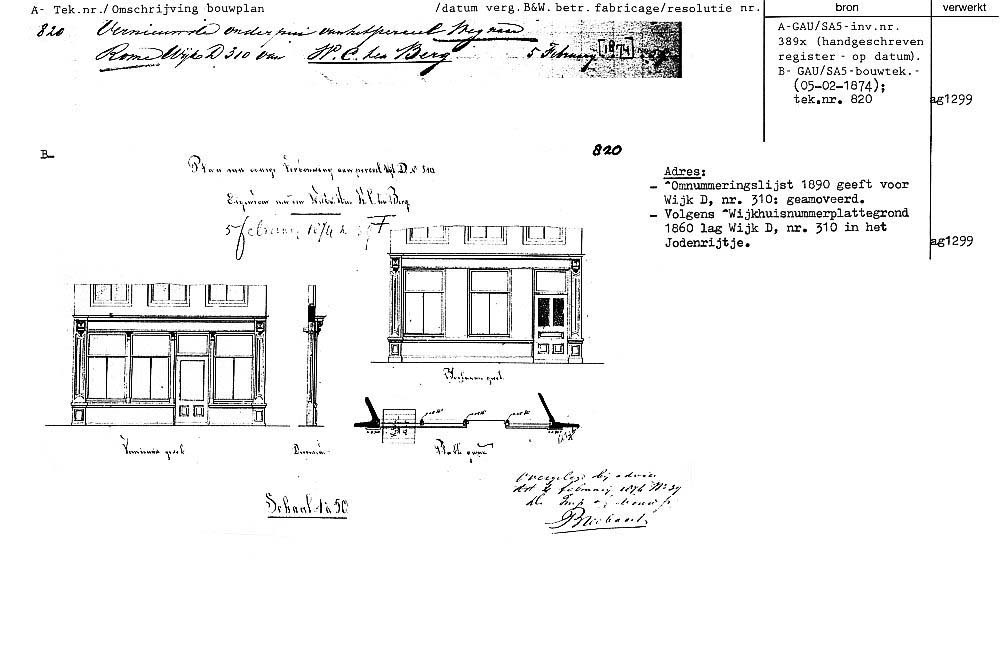 A- Tek.nr./ Omschrijving bouwplan /datum verg. B&W. betr. fabricage/resolutie nr.
bron
verwerkt
820 Vernieuwde onder pui van het perceel Weg naar
Rome Wijk D 310 van W. C. van den Berg 5 Februarij [1874]
A-GAU/SA5-inv.nr.
389x (handgeschreven
register - op datum).
B- GAU/SA5-bouwtek.-
(05-02-1874);
tek.nr. 820
ag1299
B-
820
Plan van eenige Verbouwing aan perceel Wijk D. No 310
Eigenaar
5 februarij 1874
Adres:
- ^Omnummeringslijst 1890 geeft voor
Wijk D, nr. 310: geamoveerd.
- Volgens ^Wijkhuisnummerplattegrond
1860 lag Wijk D, nr. 310 in het
Jodenrijtje.
ag1299
gevel
Vernieuwe gevel
Doorsnee
Schaal 1 à 50
Overgelegd bij advies
dd. 2 februarij 1874 No 39